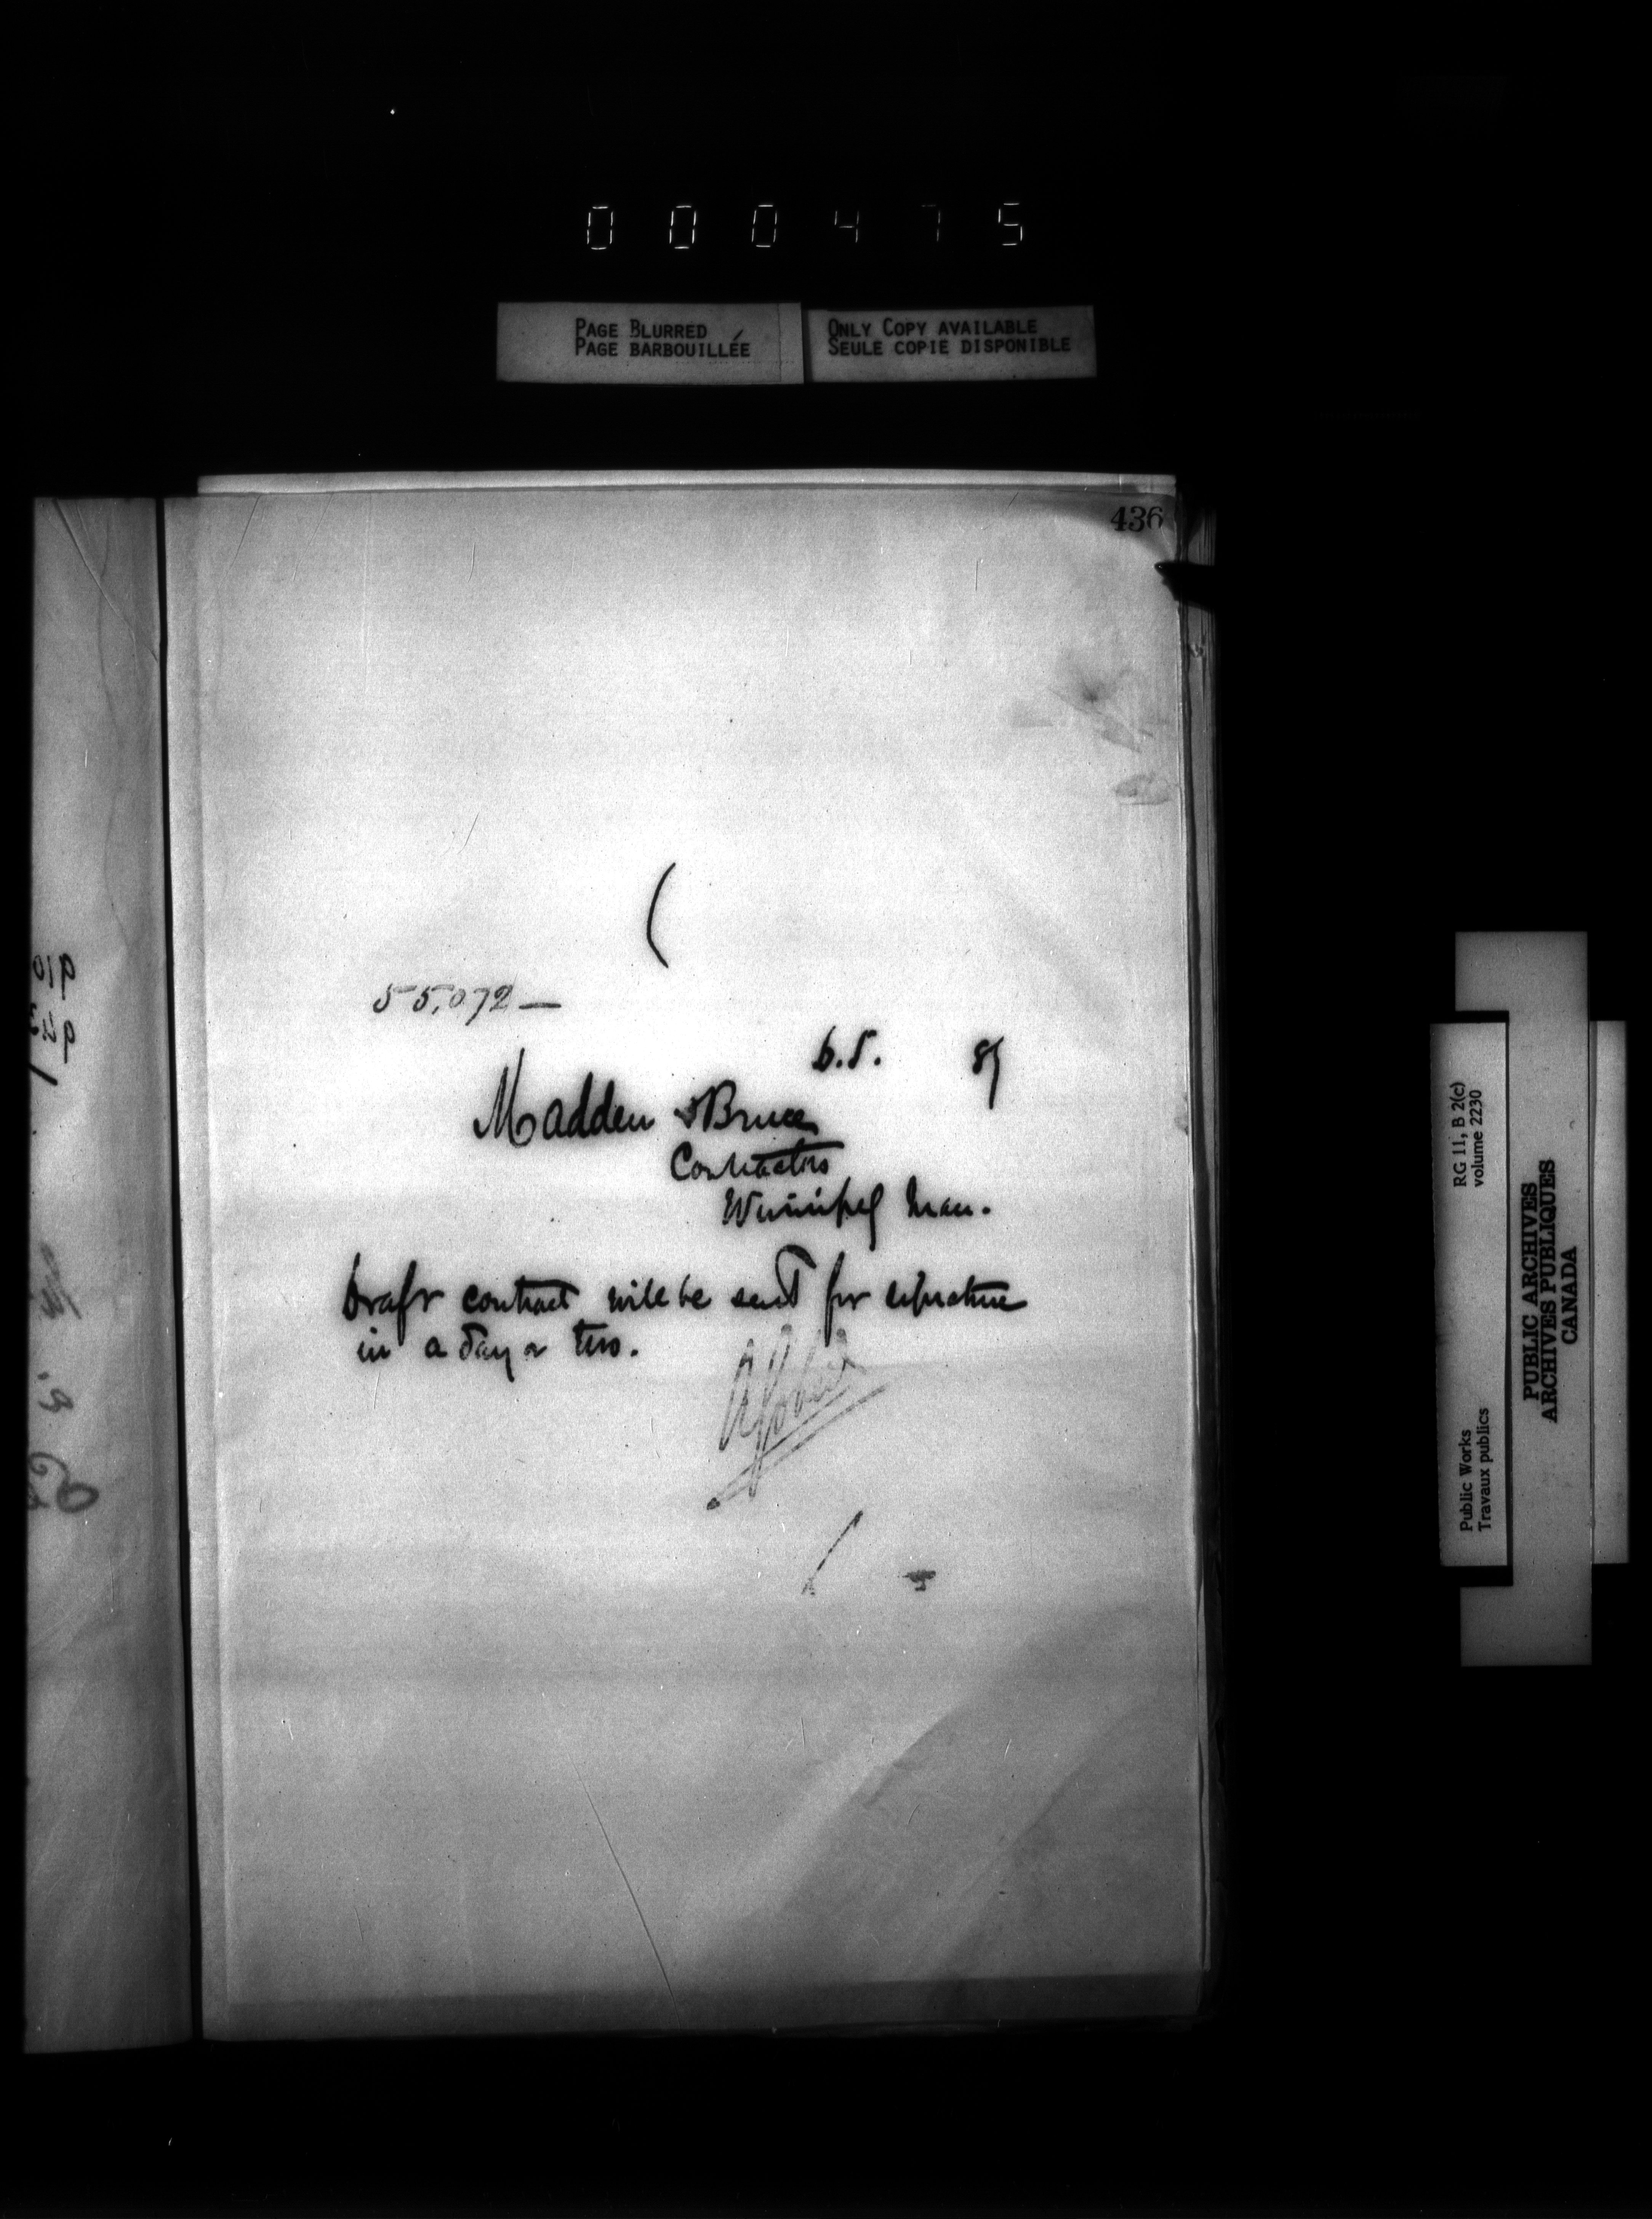 000475
PAGE BLURRED
PAGE BARBOUILLÉE
ONLY COPY AVAILABLE
SEULE COPIE DISPONIBLE
436
55,072 —
6.5. 87
Madden & Bruce
Contractors
Winnipeg Man.
Draft contract will be sent for signature
in a day or two.
AGobeil
RG 11, B 2(c)
volume 2230
Public Works
Travaux publics
PUBLIC ARCHIVES
ARCHIVES PUBLIQUES
CANADA